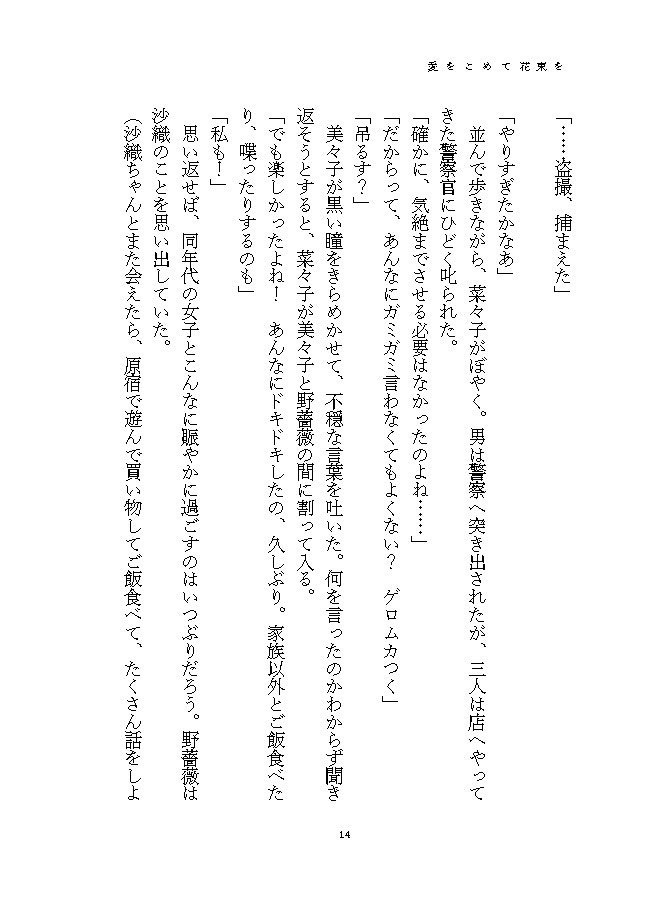 愛をこめて花束を
「……盗撮、捕まえた」
「やりすぎたかなあ」
　並んで歩きながら、菜々子がぼやく。男は警察へ突き出されたが、三人は店へやって
きた警察官にひどく叱られた。
「確かに、気絶までさせる必要はなかったのよね……」
「だからって、あんなにガミガミ言わなくてもよくない？　ゲロムカつく」
「吊るす？」
　美々子が黒い瞳をきらめかせて、不穏な言葉を吐いた。何を言ったのかわからず聞き
返そうとすると、菜々子が美々子と野薔薇の間に割って入る。
「でも楽しかったよね！　あんなにドキドキしたの、久しぶり。家族以外とご飯食べた
り、喋ったりするのも」
「私も！」
　思い返せば、同年代の女子とこんなに賑やかに過ごすのはいつぶりだろう。野薔薇は
沙織のことを思い出していた。
（沙織ちゃんとまた会えたら、原宿で遊んで買い物してご飯食べて、たくさん話をしよ
14